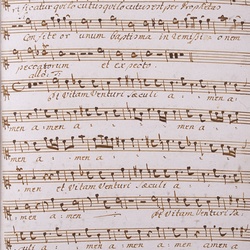 ficatur qui locutus qui locutus est per Prophetas
Confiteor unum baptisma in remissionem
peccatorum et expecto
allo:
et Vitam Venturi sæculi a men
a men a men a
men a men a men a
men a men a
men et Vitam Venturi Sæculi a
men a men et Vitam Venturi Sæ
culi a men a men a men amen